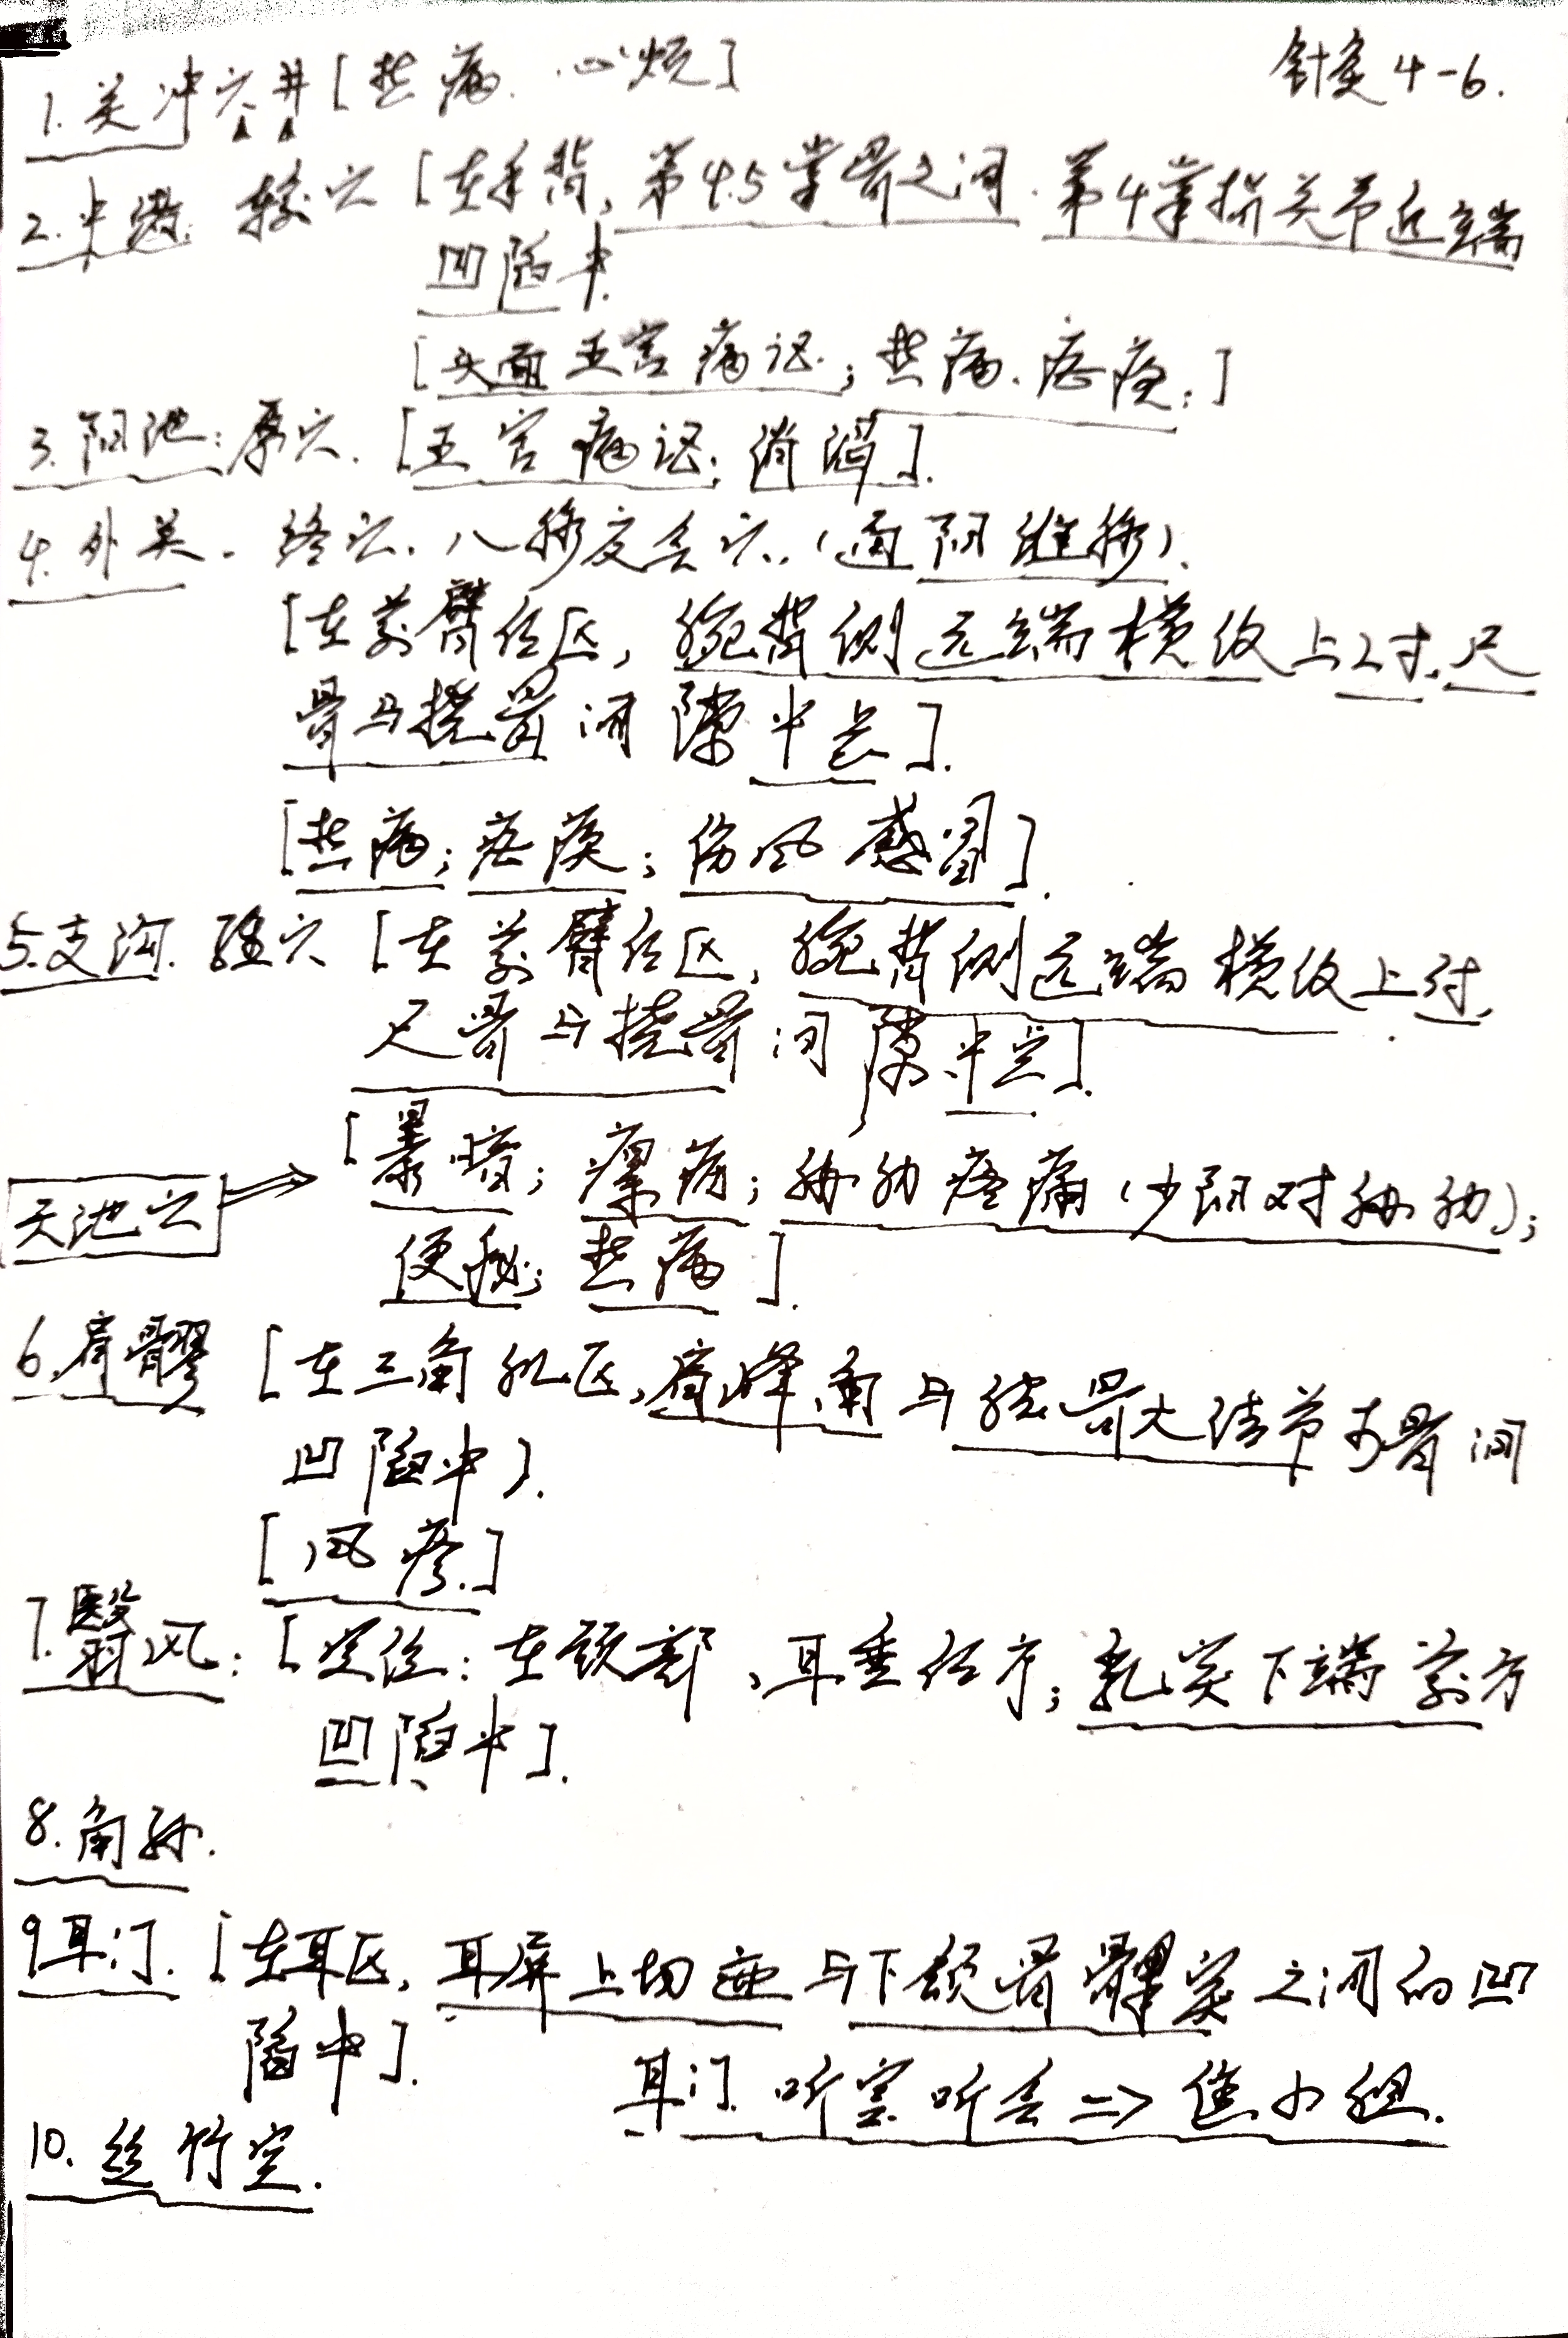 针灸4-6.
1.关冲穴.井[热病.心烦]
2.中渚. 输穴[在手背,第4.5掌骨之间.第4掌指关节近端
凹陷中.
[头面五官病证;热病.疟疾;]
3.阳池:原穴.[五官病证;消渴].
4.外关.络穴.八脉交会穴.(通阳维脉).
[在前臂后区,腕背侧远端横纹上2寸.尺
骨与桡骨间隙中点].
[热病;疟疾;伤风感冒].
5.支沟.经穴[在前臂后区,腕背侧远端横纹上3寸,
尺骨与桡骨间隙中点].
天池穴⇒[暴喑;瘰疬;胁肋疼痛(少阳对胁肋);
便秘;热病].
6.肩髎[在三角肌区,肩峰角与肱骨大结节才骨间
凹陷中).
[风疹.]
7.翳风:[定位:在颈部,耳垂后方;乳突下端前方
凹陷中].
8.角孙.
9耳门.[在耳区,耳屏上切迹与下颌骨髁突之间的凹
陷中].
耳门.听宫.听会⇒焦小组.
10.丝竹空.